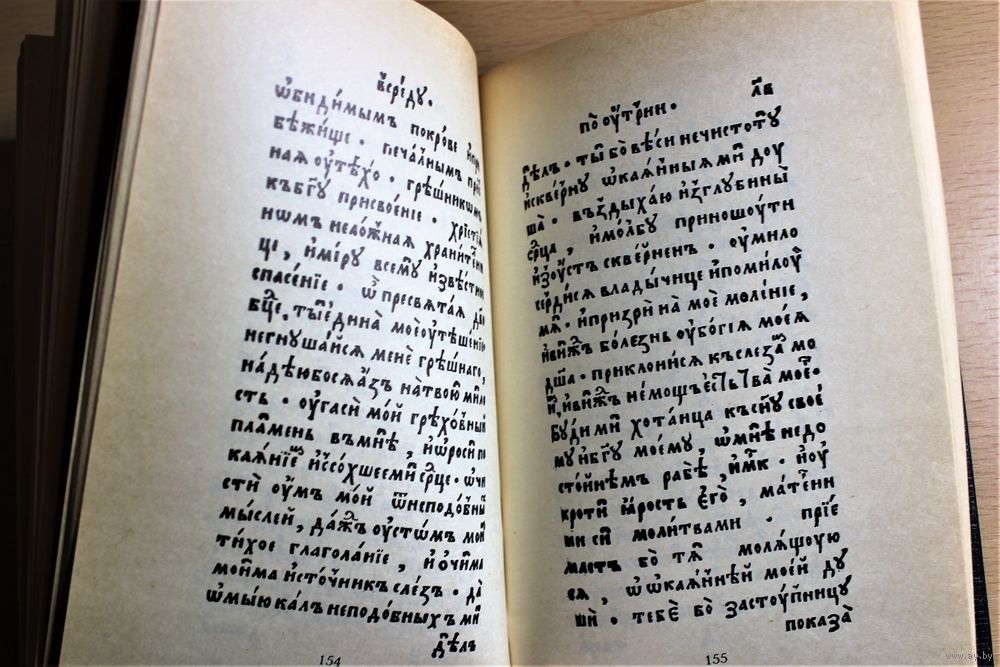 в̾сре́дꙋ.
ѡ҆би́димымъ покро́ве и҆при
бѣ́жище. печа́лнымъ прїѧ҄
наѧ ᲂу҆тѣ́хо. грѣ́шникѡмъ
къбг҃ꙋ присвое́нїе. хрїстїа҄
нѡмъ нело́жнаѧ храни́тел҄ни
це, и҆ми́рꙋ всемꙋ̀ и҆звѣ́стное
спасе́нїе. ѽ пресвѧта́ѧ дв҃о
бц҃е, ты̀ є҆ди́на моѐ ᲂу҆тѣше́нїе
негнꙋша́йсѧ менѐ грѣ́шнаго,
надѣ́юбосѧ а҆́зъ натвою̀ ми́ло
сть. ᲂу҆гасѝ мо́й грѣхо́вный
пла́мень въмнѣ̀, и҆ѡ҆росѝ по
каѧ́нїемъ и҆́ссохшеемѝ срⷣце. ѡ҆чи́
стѝ ᲂу҆́мъ мо́й ѿнеподо́вныⷯ
мы́слей, да́ждь ᲂу҆стѡ́мъ мои҄
ти́хое глаго́ланїе, и҆ ѻ҆чи́ма
мои́ма и҆сто́чникъ сле́зъ. да̀
ѡ҆мы́ю ка́лъ неподо́бныхъ ми
дѣ́лъ
154
по̀ ᲂу҆́трени. л҃в
дѣ́лъ. ты́ бо̀ вѣ́си нечистотꙋ̀
и҆скве́рнꙋ ѡ҆каѧ́нныѧ мѝ дꙋ
ша̀. въздыха́ю и҆зглꙋбины̀
срⷣца, и҆мо́лбꙋ приношꙋ́ти
и҆зᲂу҆́стъ скве́рненъ. ᲂу҆мило
се́рдисѧ влады́чице и҆поми́лꙋй
мѧ̀. и҆призрѝ на моѐ моле́нїе,
и҆ви́ждь боле́знь ᲂу҆бо́гїѧ моеѧ̀
дш҃а. приклони́сѧ къслеза́мъ мо
и҆̀, и҆ви́ждь не́мощь є҆́стьства̀ моегѡ̀.
бꙋ́ди мѝ хода́таица късн҃ꙋ своє
мꙋ и҆бг҃ꙋ моемꙋ̀, ѡ҆мнѣ̀ недо
сто́йнѣмъ рабѣ̀, и҆м҃къ. и҆ᲂу҆
кротѝ ꙗ҆́рость є҆гѡ̀, ма́терни
ми сѝ моли́твами. прїе́
млетъ бо̀ тѧ̀ молѧ́щꙋю
сѧ, ѡ҆ѡ҆каѧ́ннѣй мое́й дꙋ
шѝ. тебѐ бо̀ застꙋ́пницꙋ
показа̀
155
www.ay.by